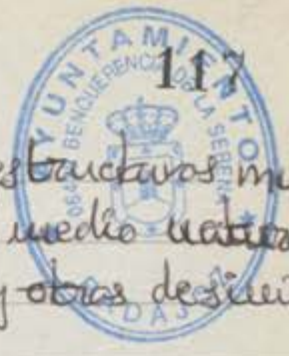 117
AYUNTAMIENTO
BENQUERENCIA DE LA SERENA
BADAJOZ
estructuras
medio
y otras de